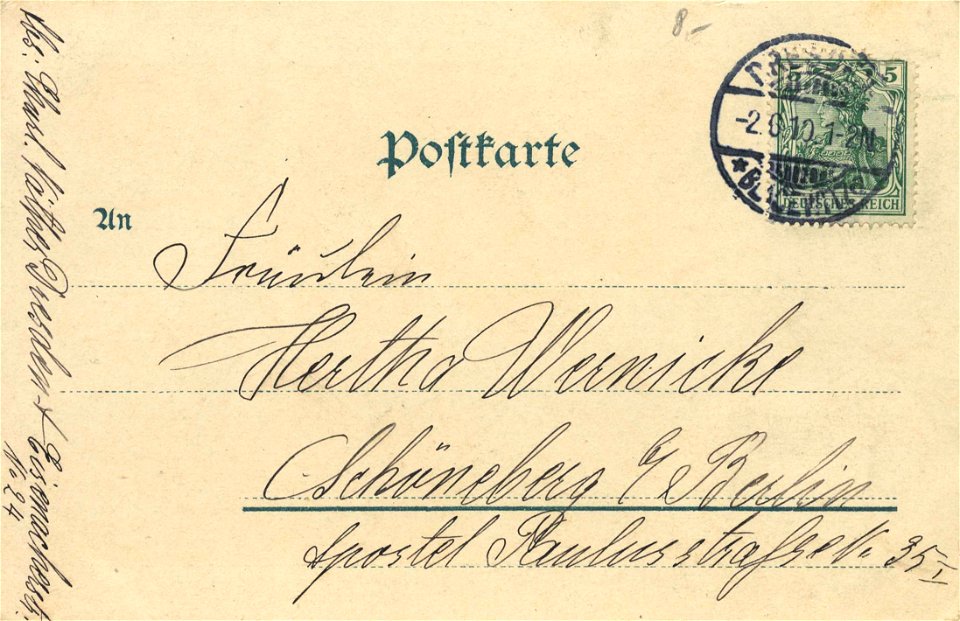 8.-
5 5
-2.6.10.1-2N.
* BLASEWITZ
DEUTSCHES REICH
Postkarte
An
Fräulein
Hertha Wernicke
Schöneberg b/ Berlin
Apostel Paulusstrasse N. 35 I
Abs: Charl. Dresden-
Nº 24